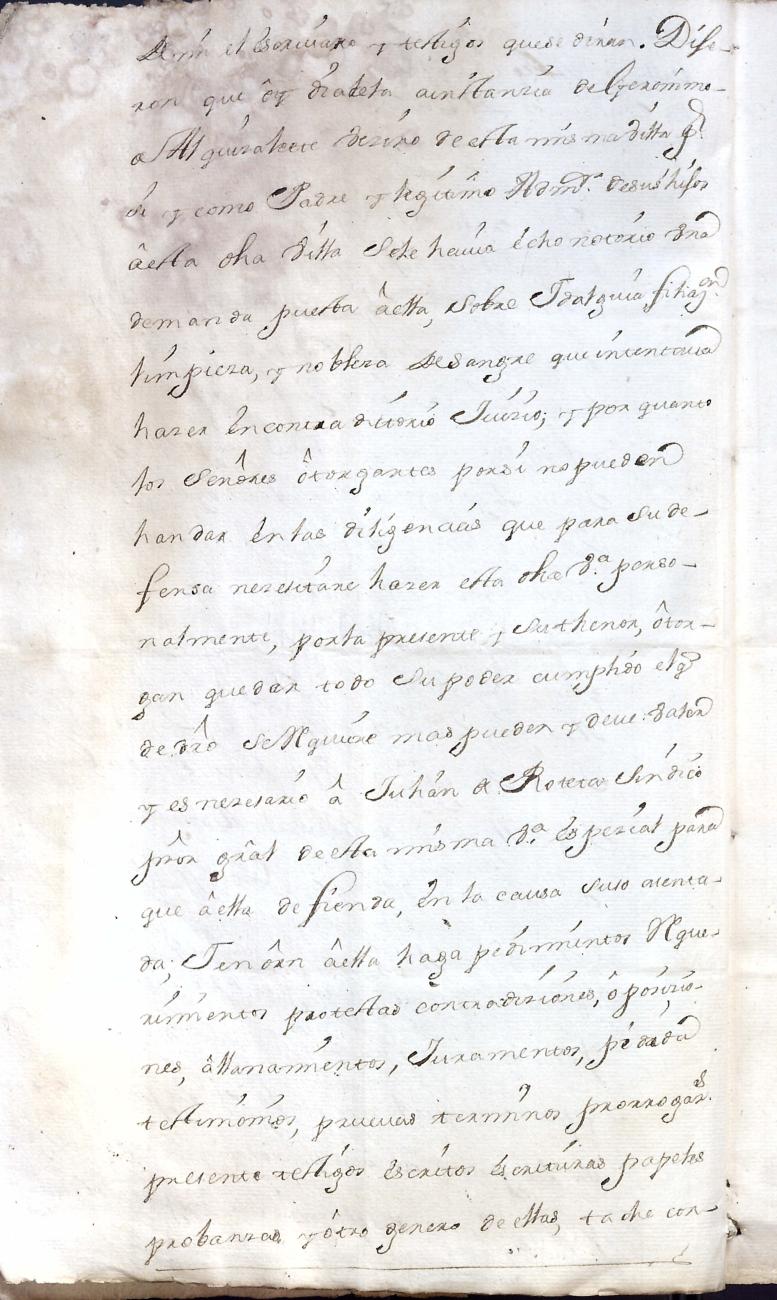 De mi el Escrivano y testigos que se diran. Dije-
ron que oy dia de la ainstanzia de Geronimo
de Alquiza lecte vezino de esta misma villa pr.
si y como Padre y legitimo Admr. de sus hijos
â esta dha villa se le havia echo notorio una
demanda puesta âella, sobre Idalguia filiazon.
limpieza, y nobleza de sangre que intentava
hazer En contraditorio Juizio; y por quanto
los Señôres ôtorgantes por si no pueden
handar én las diligencias que para su de-
fensa nezesitare hazer esta dha Va. perso-
nalmente, por la presente y su thenor, ôtor-
gan que dan todo su poder cumplido el qe
de drô se Requiere mas pueden y deve valer
y es nezesario â Julián de Roteta Sindico
prôr grâl de esta misma Va. Espezial para
que âella defienda, én la causa suso menta-
da; Y en ôrn âella haga pedimientos Reque-
rimientos protestas contradiziones, ôposizio-
nes, âllanamientos, Juramentos, pida dâ
testimonios, pruevas terminos prorrogars.
presente testigos Escritos Escrituras papeles
probanzas y ôtro genero de ellas, tache con-